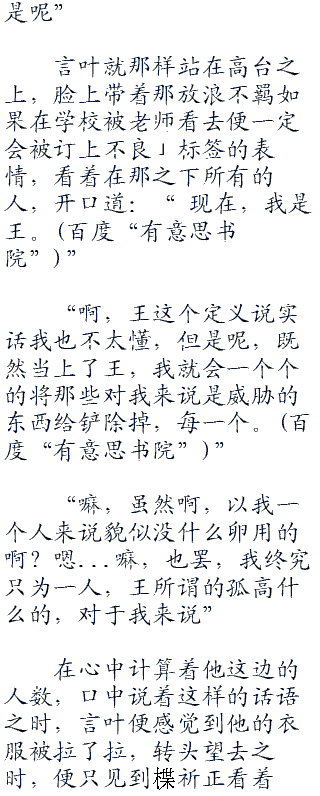 是呢”
言叶就那样站在高台之
上，脸上带着那放浪不羁如
果在学校被老师看去便一定
会被订上不良」标签的表
情，看着在那之下所有的
人，开口道：“ 现在，我是
王。(百度“有意思书
院”)”
“啊，王这个定义说实
话我也不太懂，但是呢，既
然当上了王，我就会一个个
的将那些对我来说是威胁的
东西给铲除掉，每一个。(百
度“有意思书院”)”
“嘛，虽然啊，以我一
个人来说貌似没什么卵用的
啊？嗯...嘛，也罢，我终究
只为一人，王所谓的孤高什
么的，对于我来说”
在心中计算着他这边的
人数，口中说着这样的话语
之时，言叶便感觉到他的衣
服被拉了拉，转头望去之
时，便只见到楪祈正看着